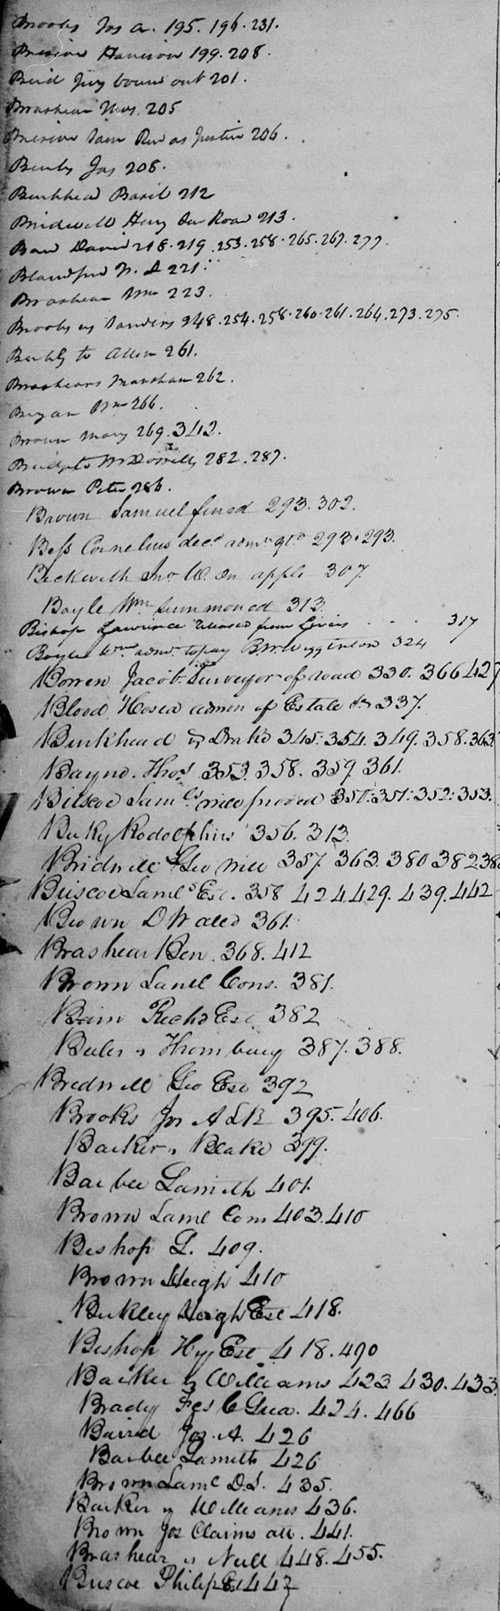 Brooks Jos A. 195. 196. 231.
Harrison 199. 208.
Bird Jury bound out 201.
Brashear Nics. 205
Sam 206.
Jas 208.
Burkhead Basil 212
Bridwell Henry Sur Road 213.
David 218. 219. 253. 258. 265. 267. 277
Blandford 221.
Brashear Wm 223.
Brooks vs Sanders 248. 254. 258. 260. 261. 264. 273. 275.
to Allen 261.
Brashears Marsham 262.
Bryan Wm 266.
Brown Mary 269. 342.
282. 287.
Brown Peter 286.
Brown Samuel fined 293. 302.
Bess Cornelius decd admr 293. 293.
Beckwith Jno W. apple 307
Boyle Wm Summoned 313.
Bishop Lawrence released from - - - 317
Boyles Wm admr to pay B. Wigginton 324
Boren Jacob Surveyor of road 330. 366 427
Blood Hosea admn of Estate 337.
Burkhead & Drake 345. 354. 349. 358. 363
Bayne Thos 353. 358. 359. 361.
Briscoe Saml will proved 350. 351. 352. 353.
Rodolphus 356. 313
Bridwell Geo will 357. 363. 380 382 38
Briscoe Saml Est. 358 424 429. 439. 442
Brown 361.
Brashear Ben. 368. 412
Brown Saml Cons. 381.
Bain Richd Est 382
Beeler vs Thornbury 387. 388.
Bridwell Geo Est 392
Brooks Jos A 395. 406.
Barker vs Blake 399.
Barbee Lamith 401.
Brown Saml Com 403. 410
Bishop L. 409.
Brown Hugh 410
Hugh Est 418.
Bishop Hy Est 418. 490
Barker vs Williams 423 430. 433
Brady 424. 466
Baird Jos. A. 426
Barbee Lamith 426
Brown Saml D.S. 435.
Barker vs Williams 436.
Brown Jos Claims all. 441.
Brashear vs Null 448. 455.
Briscoe Philip Est 447